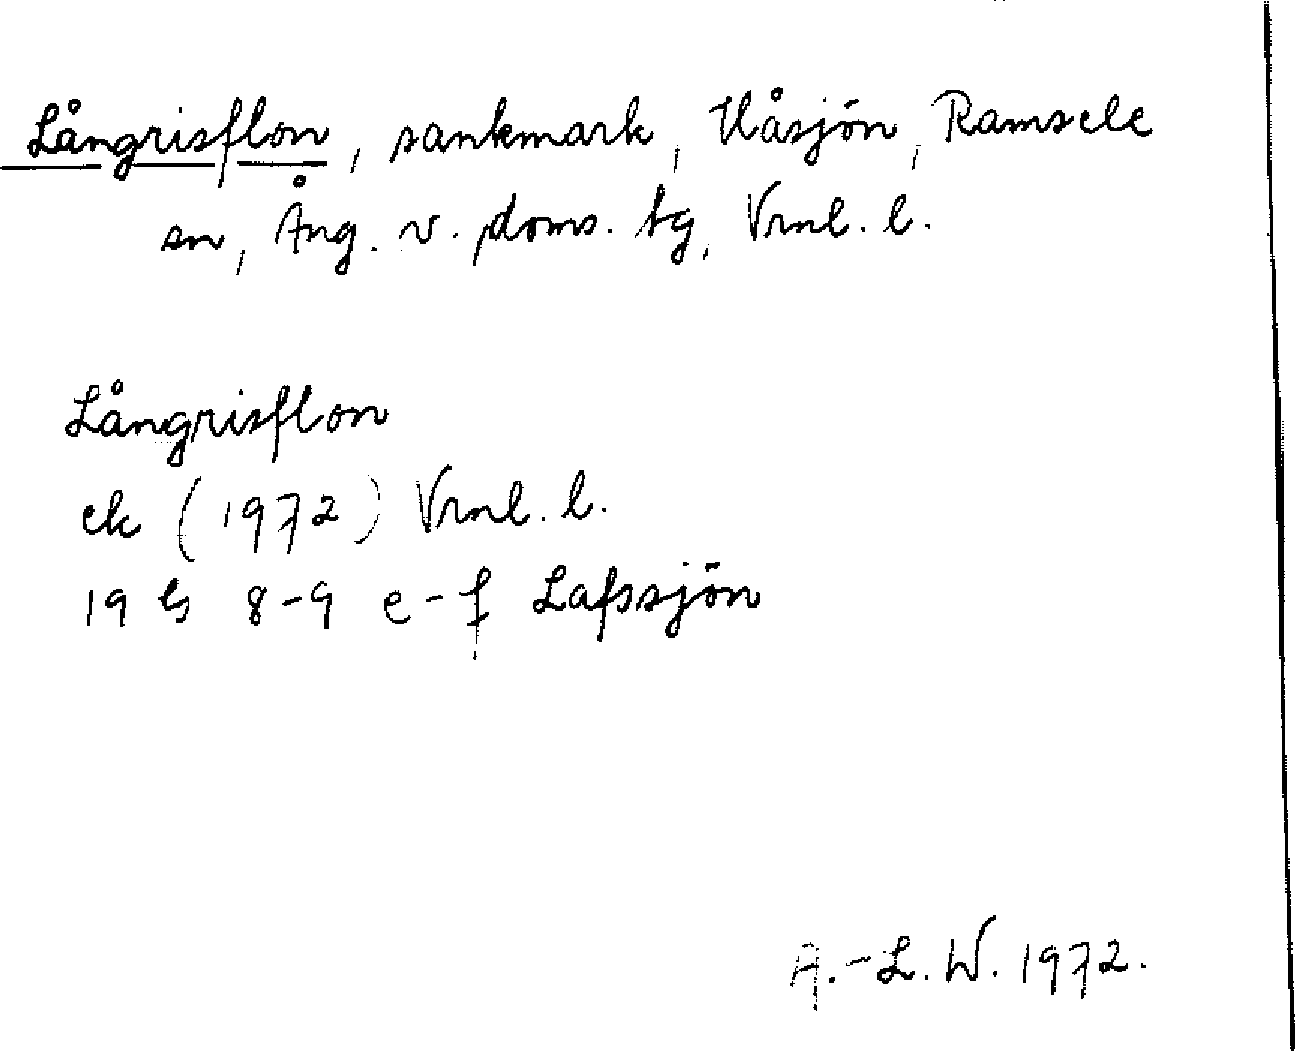 Långrisflon, sankmark, Håsjön, Ramsele
sn, Ång. v. doms. tg, Vrnl. l.
Långrisflon
ek (1972) Vrnl. l.
19 G 8-9 e-f Lafssjön
A.-L. W. 1972.